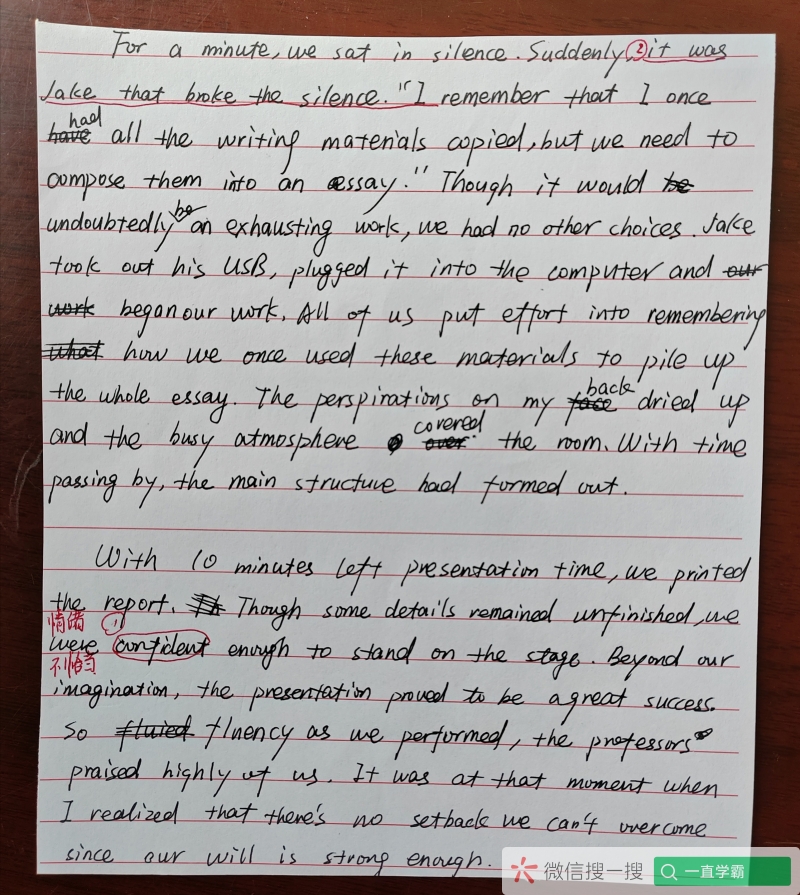 For a minute, we sat in silence. Suddenly ② it was
Jake that broke the silence. "I remember that I once
had
have all the writing materials copied, but we need to
compose them into an essay." Though it would be
be
undoubtedly an exhausting work, we had no other choices. Jake
took out his USB, plugged it into the computer and our
work began our work. All of us put effort into remembering
what how we once used these materials to pile up
the whole essay. The perspirations on my face dried up
back
and the busy atmosphere over the room. With time
covered
passing by, the main structure had formed out.
With 10 minutes left presentation time, we printed
the report. Though some details remained unfinished, we
情绪 ①
were confident enough to stand on the stage. Beyond our
不恰当
imagination, the presentation proved to be a great success.
So fluied fluency as we performed, the professors
praised highly of us. It was at that moment when
I realized that there's no setback we can't overcome
since our will is strong enough.
微信搜一搜 一直学霸